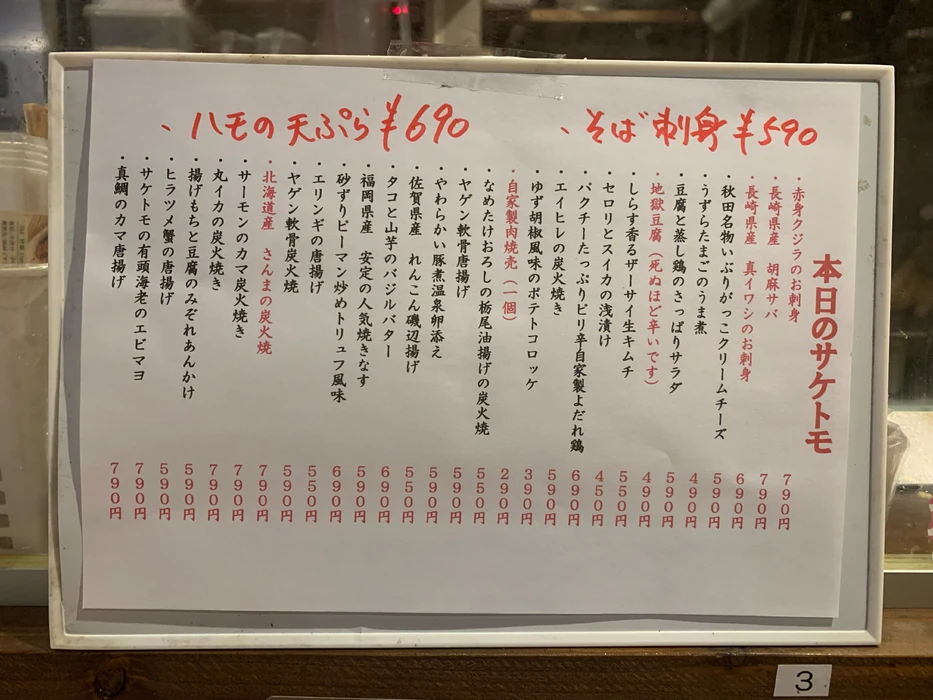 、そば刺身¥590
、ハモの天ぷら¥690
本日のサケトモ
・赤身クジラのお刺身 790円
・長崎県産 胡麻サバ 790円
・長崎県産 真イワシのお刺身 690円
・秋田名物いぶりがっこクリームチーズ 590円
・うずらたまごのうま煮 490円
・豆腐と蒸し鶏のさっぱりサラダ 590円
・地獄豆腐(死ぬほど辛いです) 490円
・しらす香るザーサイ生キムチ 550円
・セロリとスイカの浅漬け 450円
・パクチーたっぷりピリ辛自家製よだれ鶏 690円
・エイヒレの炭火焼き 590円
・ゆず胡椒風味のポテトコロッケ 390円
・自家製肉焼売(一個) 290円
・なめたけおろしの栃尾油揚げの炭火焼 550円
・ヤゲン軟骨唐揚げ 590円
・やわらかい豚煮温泉卵添え 590円
・佐賀県産 れんこん磯辺揚げ 550円
・タコと山芋のバジルバター 690円
・福岡県産 安定の人気焼きなす 590円
・砂ずりピーマン炒めトリュフ風味 690円
・エリンギの唐揚げ 550円
・ヤゲン軟骨炭火焼 590円
・北海道産 さんまの炭火焼 790円
・サーモンのカマ炭火焼き 790円
・丸イカの炭火焼き 790円
・揚げもちと豆腐のみぞれあんかけ 590円
・ヒラツメ蟹の唐揚げ 590円
・サケトモの有頭海老のエビマヨ 790円
・真鯛のカマ唐揚げ 790円
3